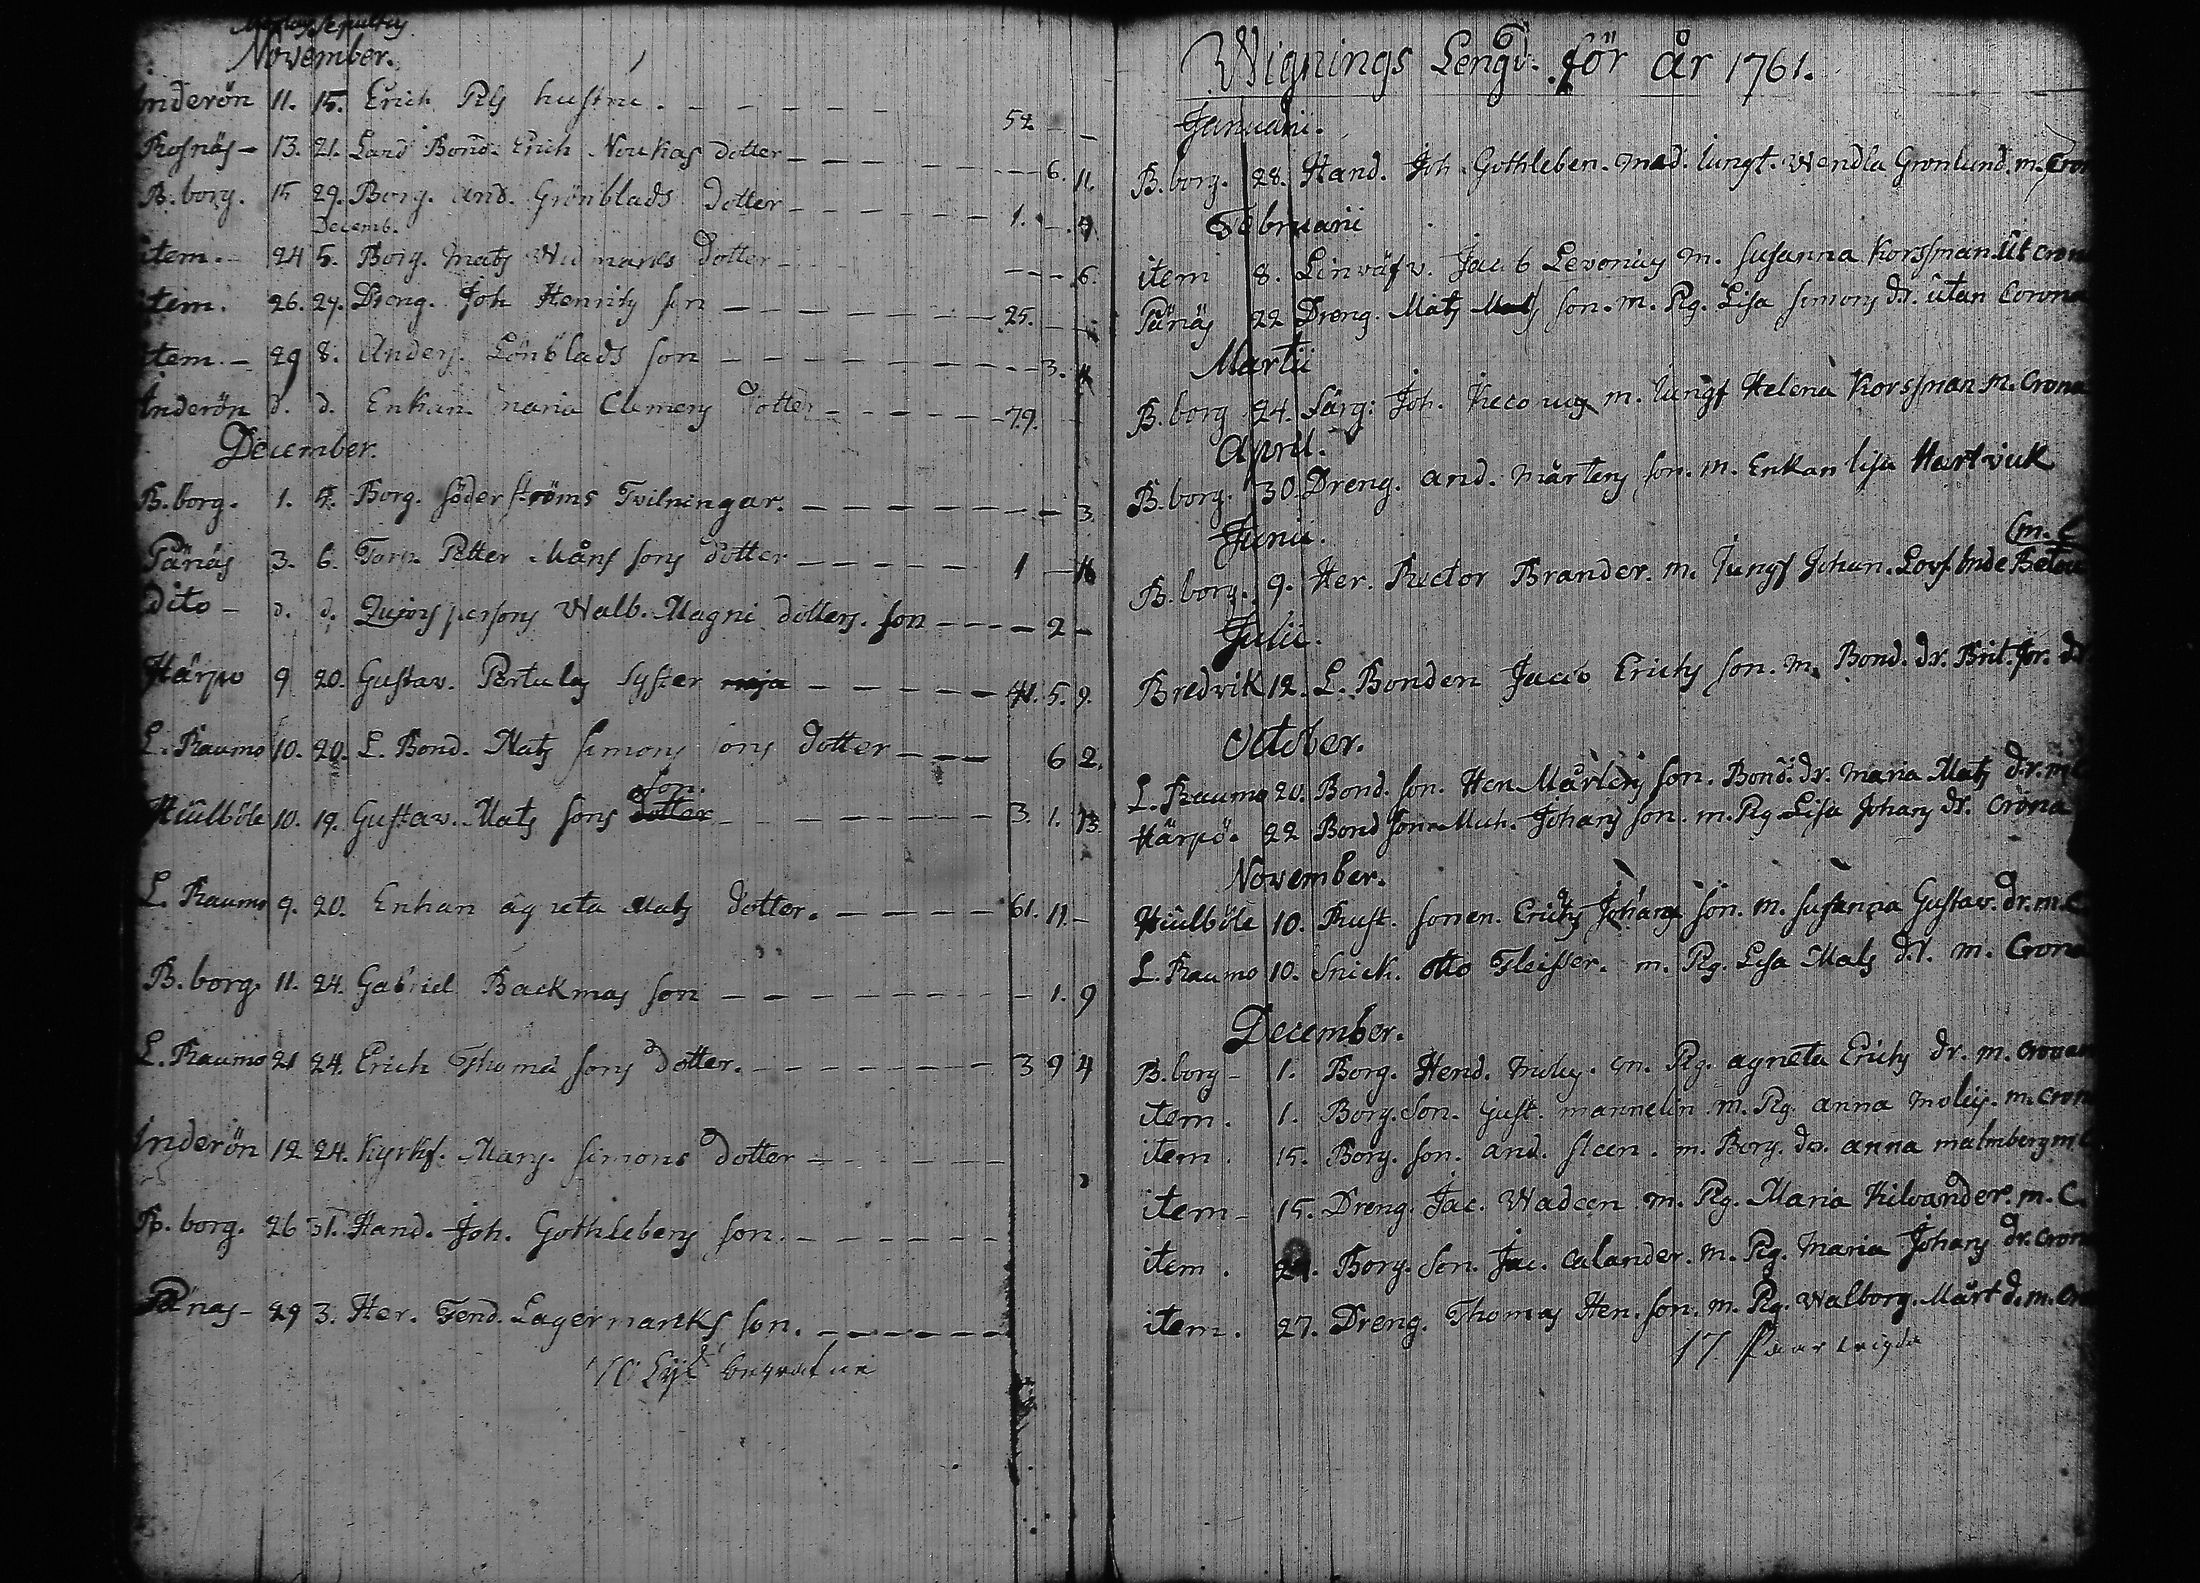 November.
Inderön 11. 15. Erich Pels hustru. 52
Rosnäs 13. 21. Land Bond. Erich Noukas dotter 6. 11.
B.borg. 15 29. Borg. And. Grönblads dotter 1. 9
Decemb.
item. 24 5. Borg. Mats Widmarks dotter 6.
item. 26. 27. Dreng. Joh Henrichs son 25.
item. 29 8. Anders. Lönblads son 3.
Inderön d. d. Enkan. maria Clemens dotter 79.
December.
B.borg. 1. Borg. Söderströms Tvilningar. 3.
Pänäs 3. 6. Torp. Petter Måns sons dotter 1
dito d. d. Walb. Magni dotters. son 2
Härpö 9 20. Gustav. Pertulas syster 5. 9.
L. Raumo 10. 20. L. Bond. Mats simons sons dotter 6 2.
son.
Hiulböle 10. 19. Gustav. Mats sons dotter 3. 1. 13
L. Raumo 9. 20. Enkan agneta Mats dotter. 61. 11
B.borg. 11. 24. Gabriel Backmas son 1. 9
L. Raumo 21 24. Erich Thoma sons dotter. 3 9 4
Inderön 12 24. Kyrkf. Mary. simons dotter
B. borg. 26 31. Hand. Joh. Gothlebens son.
Pänas 29 3. Her. Fend. Lagermarks son.
70 Lyk begrafne
Wignings Lengd. för år 1761.
Januarii.
B.borg. 28. Hand. Joh. Gothleben. med. Iungf. Wendla Gronlund. m. Cron
Februarii
item 8. Linväfv. Jacob Levonius m. Susanna Korsman. Ut cron
Pänäs 22 Dreng. Mats Mats son. m. Pig. Lisa simons dr. utan Corona
Martii
B.borg 24. Sarg: Joh. m. Iungf Helena Korsman m. Crona
April.
B.borg. 30 Dreng. And. Mårtens son. m. Enkan lisa Hartvick
Junii. (m. C
B.borg. 9. Her. Rector Brander. m. Jungf Johan.
Julii.
Bredvik 12. L. Bonden Jacob Erichs son. m. Bond. dr. Brit. Jor. dr
October.
L. Raumo 20. Bond. son. Hen Mårtens son. Bond. dr. Maria Mats dr. m C
Härpö. 22 Bond son Mich. Johans son. m. Pig Lisa Johans dr. Crona
November.
Hiulböle 10. Rust. sonen. Erichs Johans son. m. Susanna Gustav. dr. m. C
L. Raumo 10. Snick. Otto Fleisser. m. Pig. Lisa Mats dr. m. Crona
December.
B.borg 1. Borg. Hend. m. Pig. agneta Erichs dr. m. cronan
item. 1. Borg. Son. Gust. mannelin m. Pig. anna m. cron
item. 15. Borg. son. And. steen. m. Borg. dr. anna malmberg m C
item 15. Dreng. Jac. Wadeen m. Pig. Maria Kilvander. m. C.
item. Borg. Son. Jac. Calander. m. Pig. Maria Johans dr. Cron
item. 27. Dreng. Thomas Hen. son. m. Pig. Walborg. Märt d. m. Cro
17 Paar vigda